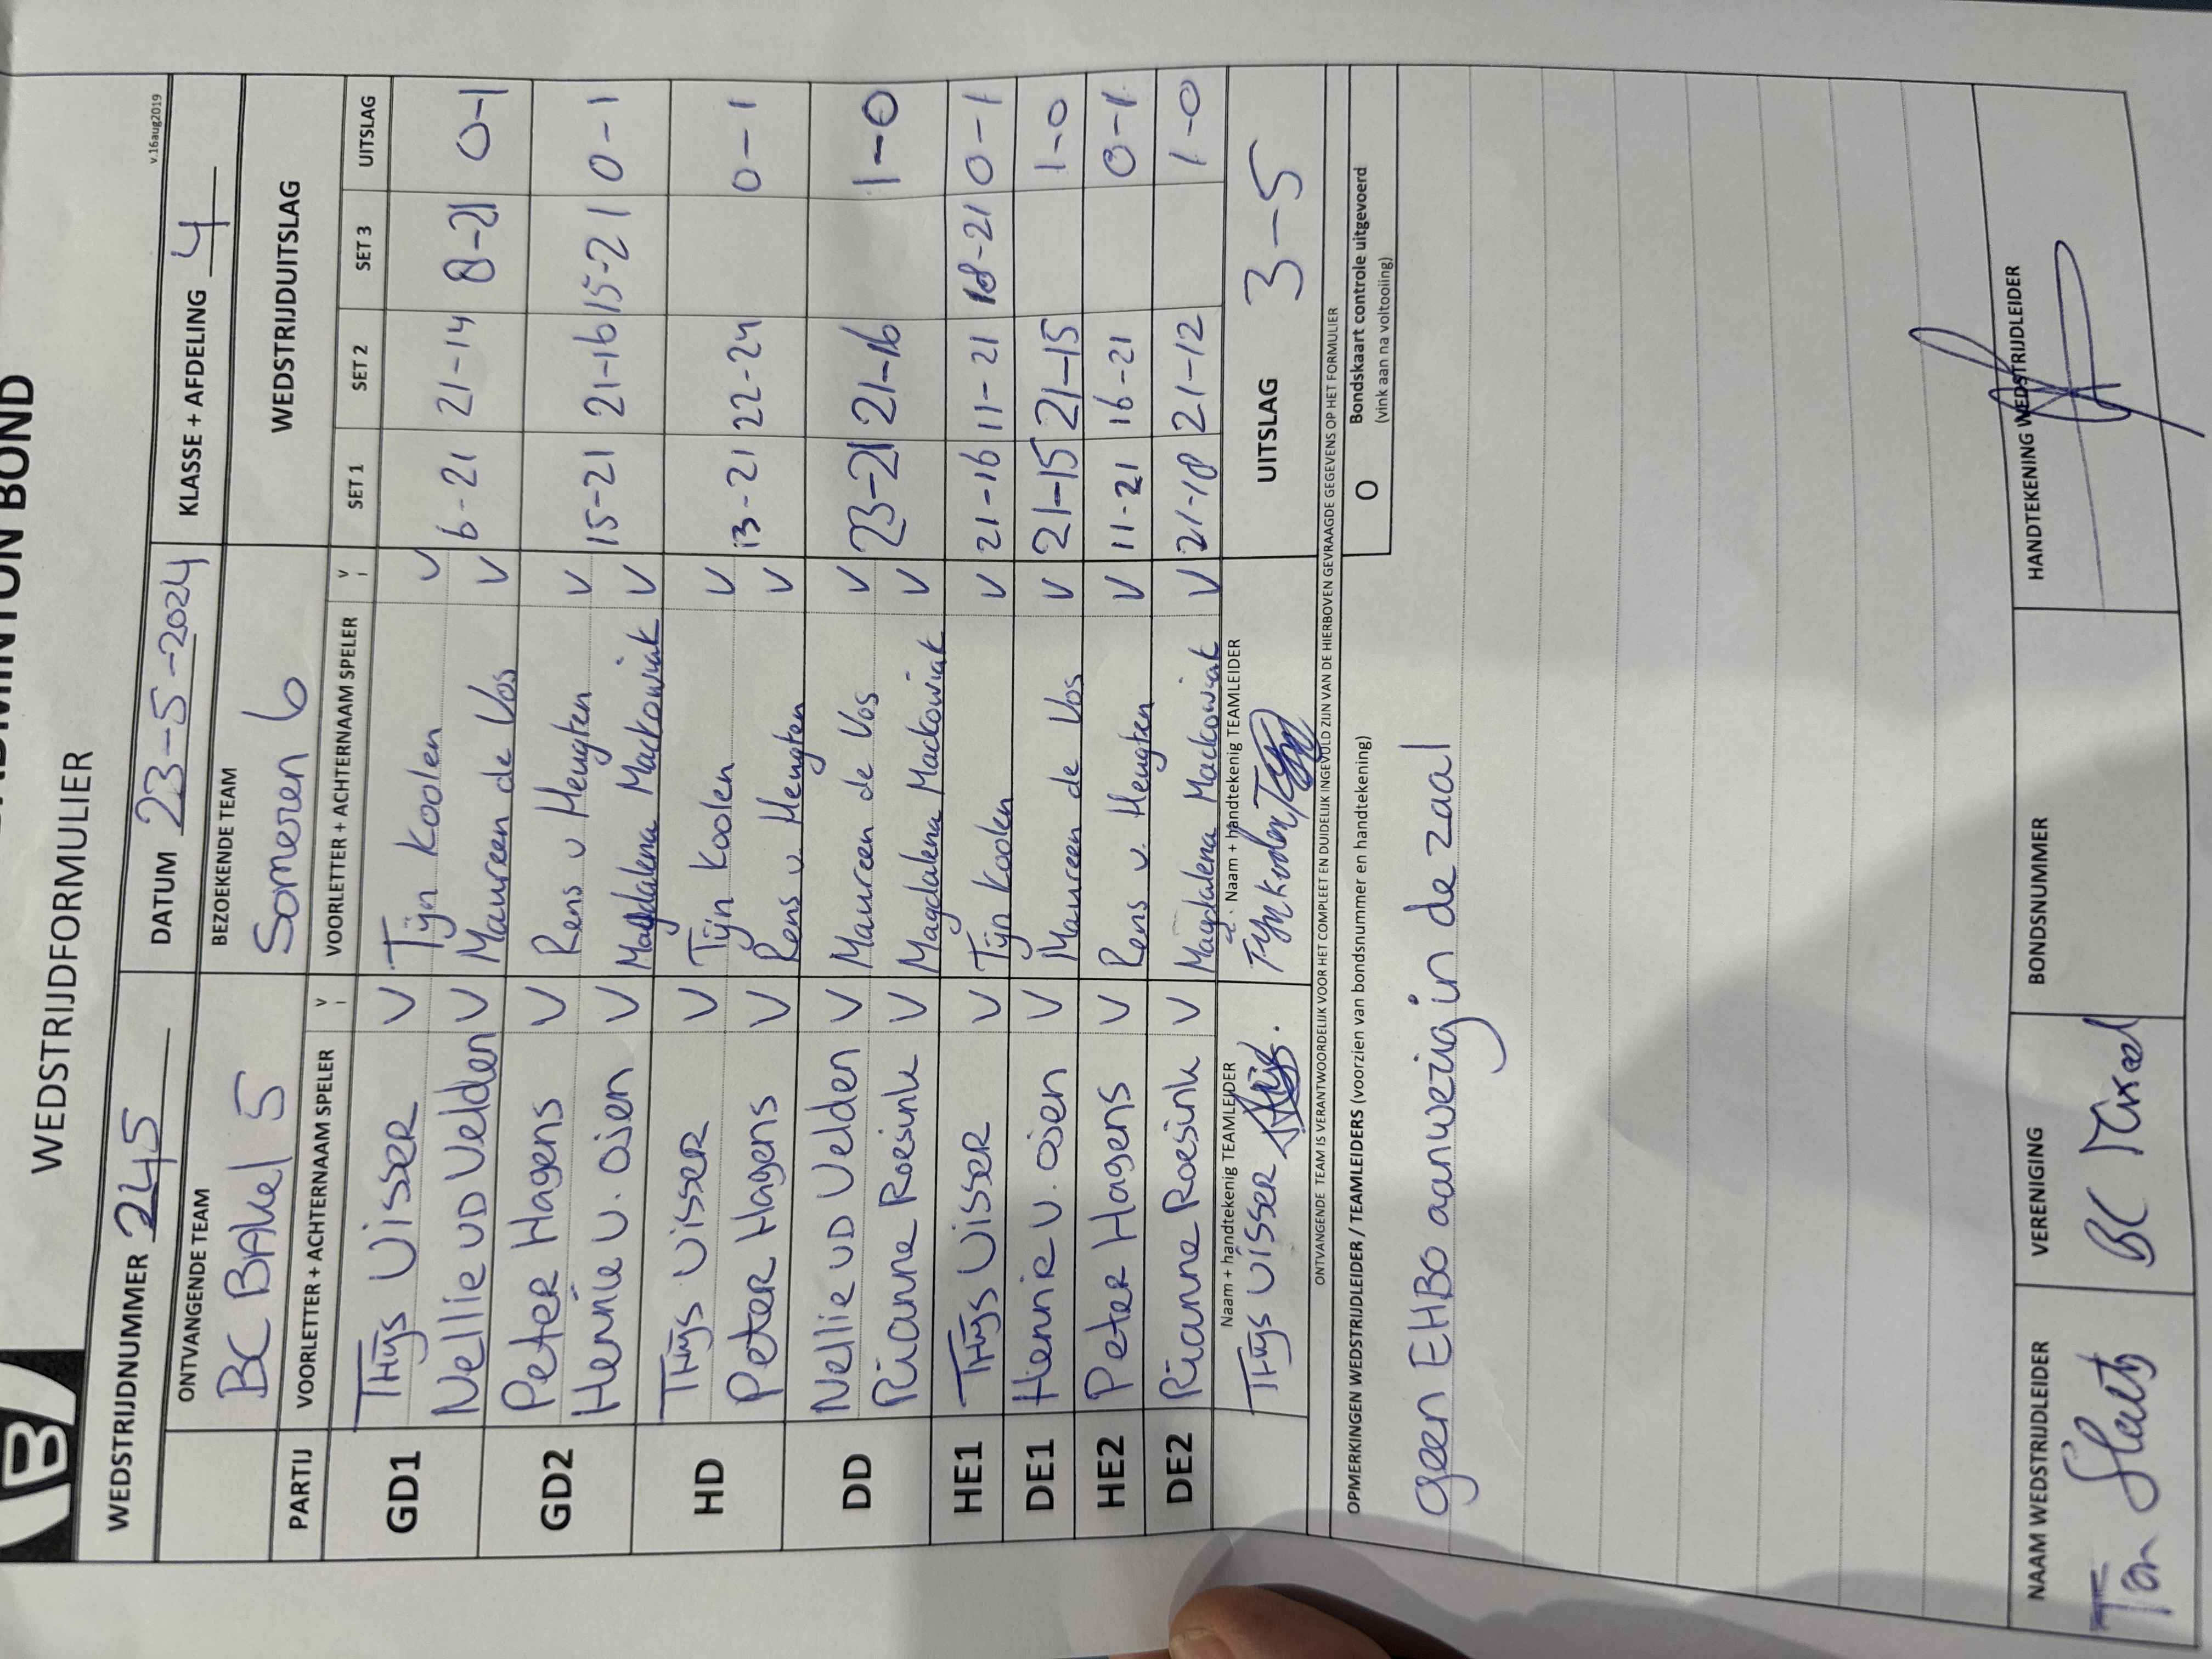 BADMINTON BOND
B
WEDSTRIJDFORMULIER
v.16aug2019
WEDSTRIJDNUMMER 245 DATUM 23-5-2024 KLASSE + AFDELING 4
ONTVANGENDE TEAM BEZOEKENDE TEAM WEDSTRIJDUITSLAG
BC BAKel 5 Someren 6
PARTIJ VOORLETTER + ACHTERNAAM SPELER V VOORLETTER + ACHTERNAAM SPELER V SET 1 SET 2 SET 3 UITSLAG
GD1 THijs Visser V Tijn Koolen V 6-21 21-14 8-21 0-1
Nellie VD Velden V Maureen de Vos V
GD2 Peter Hagens V Rens v Heugten V 15-21 21-16 15-21 0-1
Hennie v. Osen V Magdalena Mackowiak V
HD THijs Visser V Tijn Koolen V 13-21 22-24 0-1
Peter Hagens V Rens v. Heugten V
DD Nellie VD Velden V Maureen de Vos V 23-21 21-16 1-0
Rianne Roesink V Magdalena Mackowiak V
HE1 THijs Visser V Tijn Koolen V 21-16 11-21 18-21 0-1
DE1 Hennie v. Osen V Maureen de Vos V 21-15 21-15 1-0
HE2 Peter Hagens V Rens v. Heugten V 11-21 16-21 0-1
DE2 Rianne Roesink V Magdalena Mackowiak V 21-18 21-12 1-0
Naam + handtekenig TEAMLEIDER Naam + handtekenig TEAMLEIDER UITSLAG 3-5
THijs Visser Tijn Koolen
ONTVANGENDE TEAM IS VERANTWOORDELIJK VOOR HET COMPLEET EN DUIDELIJK INGEVULD ZIJN VAN DE HIERBOVEN GEVRAAGDE GEGEVENS OP HET FORMULIER
OPMERKINGEN WEDSTRIJDLEIDER / TEAMLEIDERS (voorzien van bondsnummer en handtekening) O Bondskaart controle uitgevoerd
(vink aan na voltooiing)
geen EHBO aanwezig in de zaal
NAAM WEDSTRIJDLEIDER VERENIGING BONDSNUMMER HANDTEKENING WEDSTRIJDLEIDER
BC